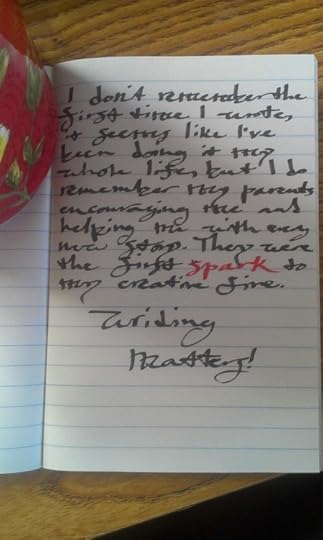 I don't remember the
first time I wrote,
it seems like I've
been doing it my
whole life, but I do
remember my parents
encouraging me and
helping me with every
new story. They were
the first spark to
my creative fire.
Writing
Matters!